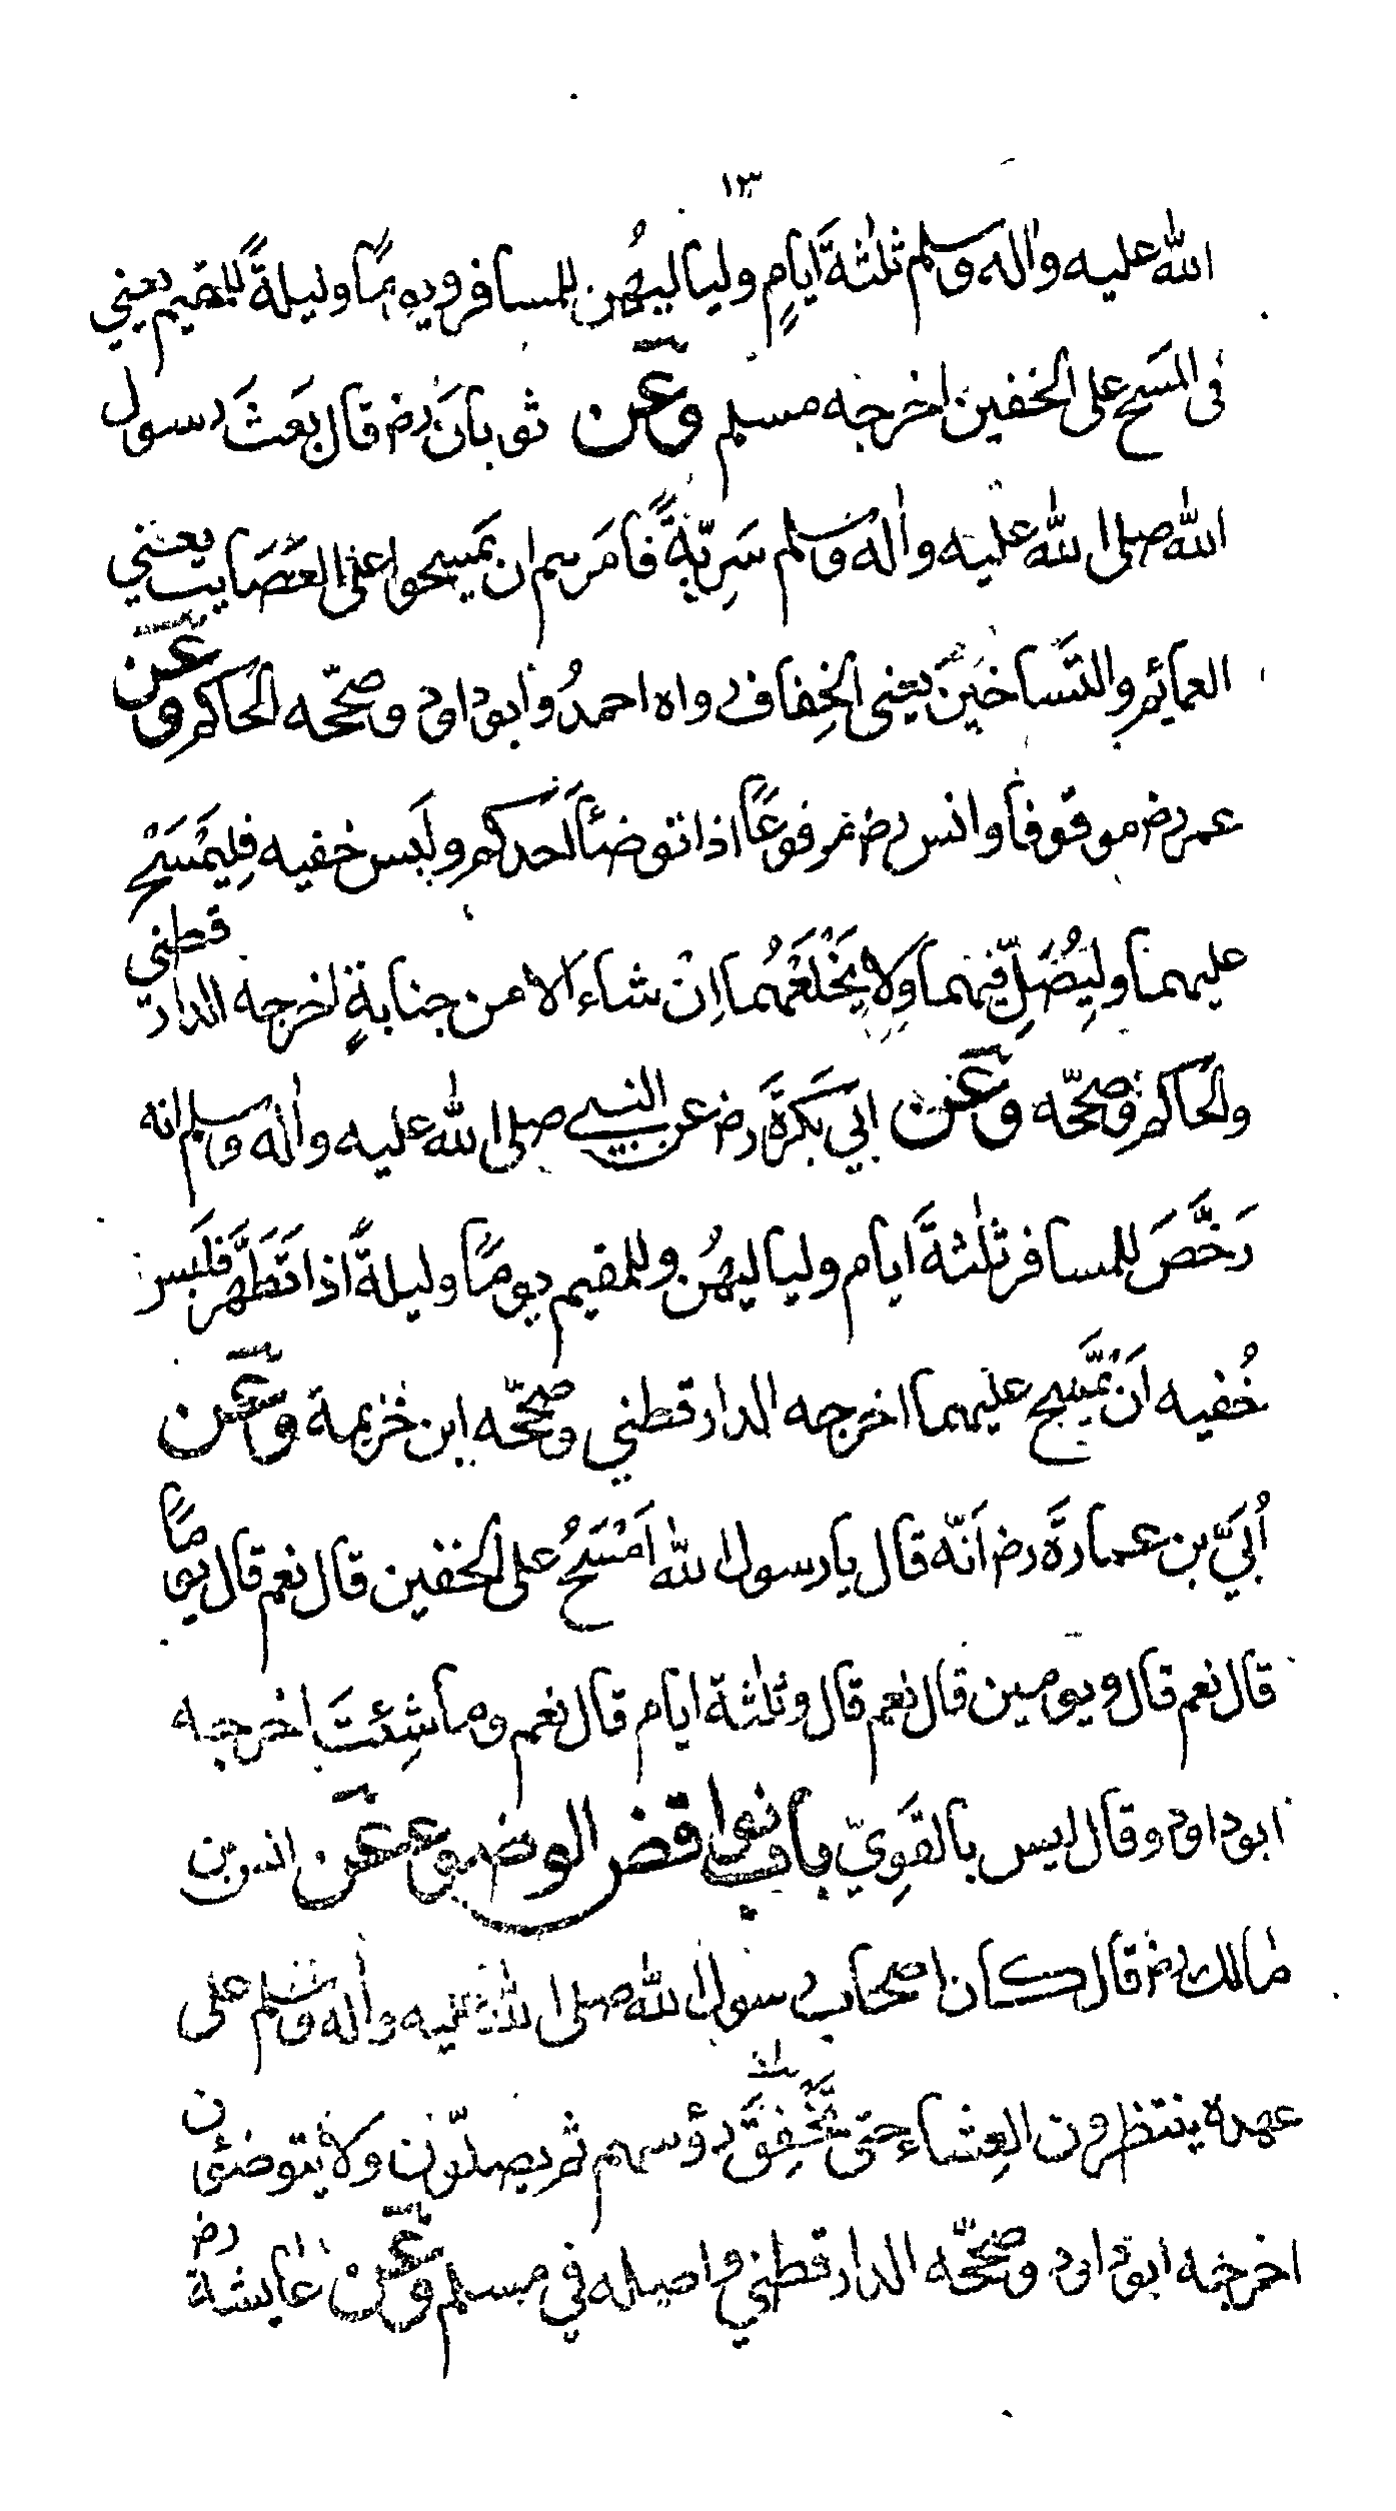 ١٣
الله عليه واله وسلم ثلثةَ ايامٍ ولياليهُن للمسافر ويومًا وليلةً للمقيم يعني
فى المَسَح على الخفين اخرجه مسلم وعَن ثوبانَ رض قال بَعَثَ رسول
الله صلى الله عليه واله وسلم سَرِيّةً فامَرهم ان يَمسحوا على العَصَايب يعني
العمايِم والتَساخَينَ يعنى الخِفاف رواه احمدُ وابوداود وصحّحه الحاكم وعَن
عمر رض موقوفا وانس رض مرفوعًا اذا توضأ اَحَدكم ولَبَس خفيه فليَمْسَحْ
عليهما وليُصَلِّ فيهما ولا يَخْلَعْهُما اِنْ شاء الا من جنابةٍ اخرجه الدارقطني
والحاكم وصحّحه وعَن ابي بَكَرَةَ رض عن النبي صلى الله عليه واله وسلم انه
رَخَّصَ للمسافر ثلثةَ ايام ولياليهُن وللمقيم يومًا وليلةً اذا تَطَهَّر فلَبَس
خُفيه اَنْ يَمَسح عليهما اخرجه الدارقطني وصحّحه ابن خزيمة وعَن
اُبَيّ بن عمارَةَ رض اَنّه قال يا رسول الله اَمْسَحُ على الخفين قال نعم قال يومًا
قال نعم قال ويومين قال نعم قال وثلثة ايام قال نعم وما شِئتَ اخرجه
ابوداود وقال ليس بالقَوِيّ باب نواقض الوضوء عَن انس بن
مالك رض قال كان اصحاب رسول الله صلى الله عليه واله وسلم على
عهده ينتظرون العِشاء حتى تَخْفِقَ رؤسهم ثم يصلّون ولا يتوضئون
اخرجه ابوداود وصحّحه الدارقطني واصله في مسلم وعَن عايشة رض